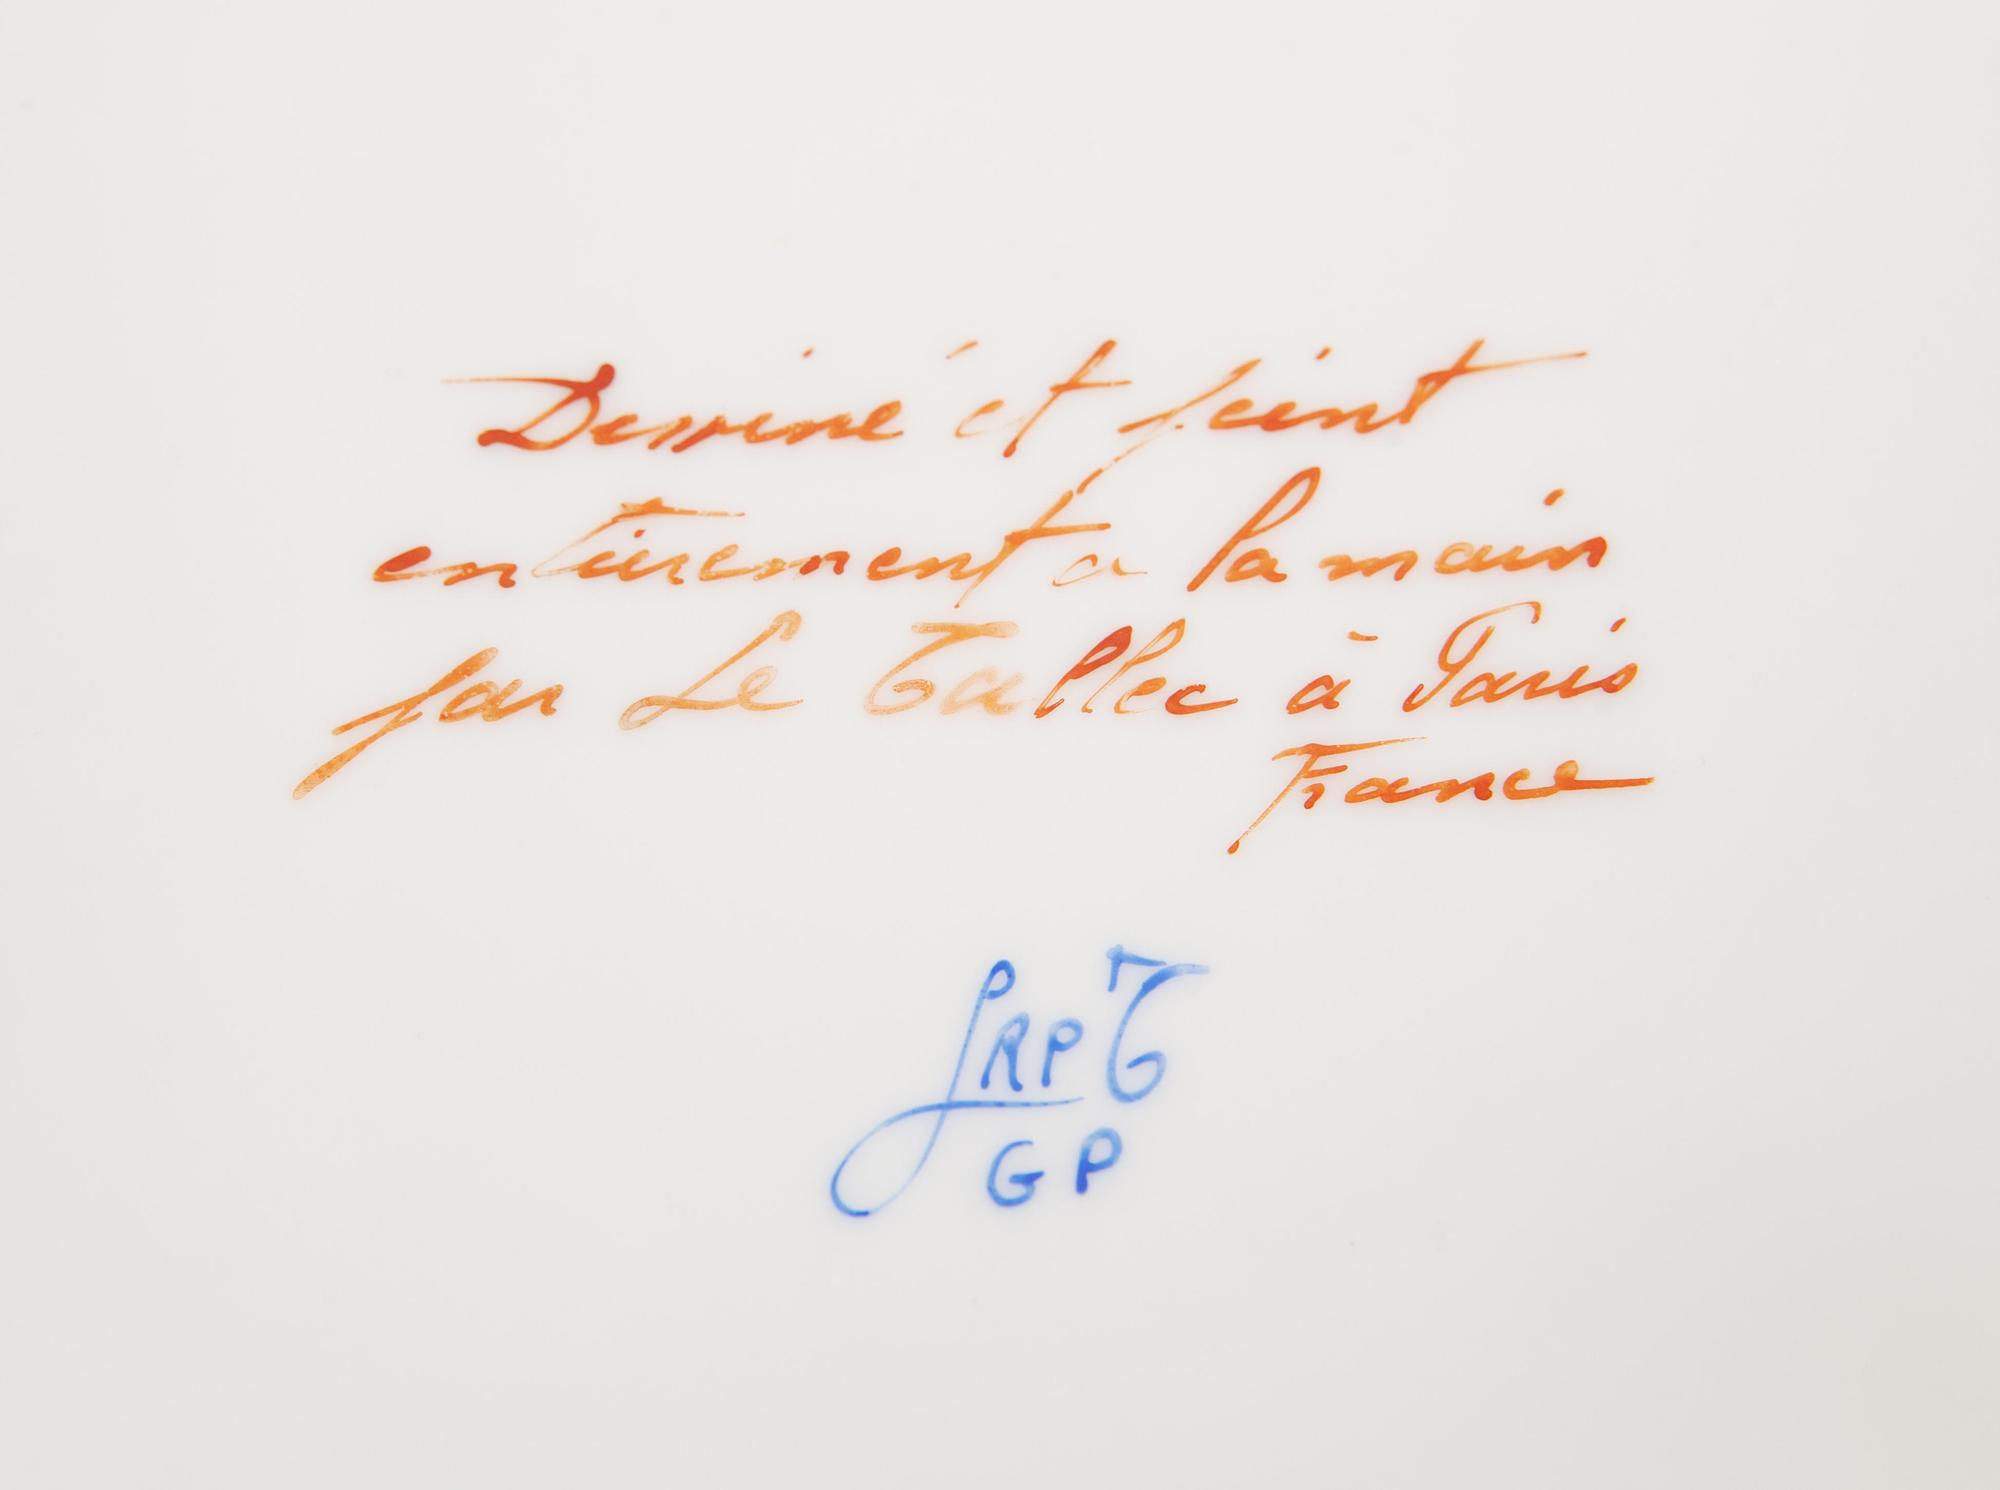 Dessiné et peint
entièrement a la main
par Le Tallec à Paris
France
LRPT
GP